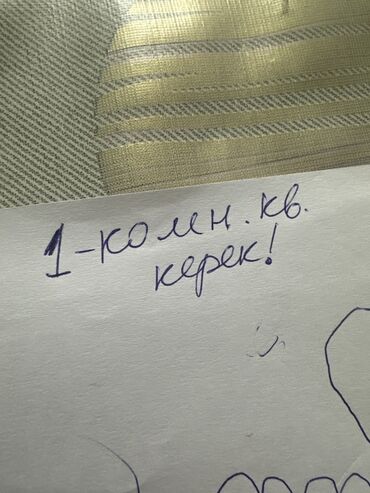 1-комн. кв.
керек!